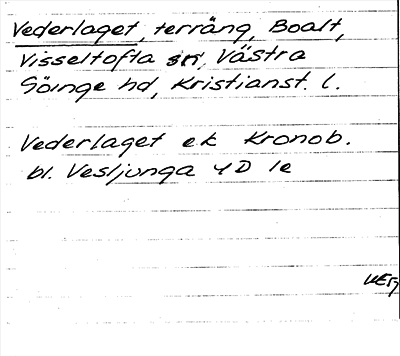 Vederlaget, terräng, Boalt,
Visseltofta sn, Västra
Göinge hd, Kristianst. l.
Vederlaget ek Kronob.
bl. Vesljunga 4D 1e